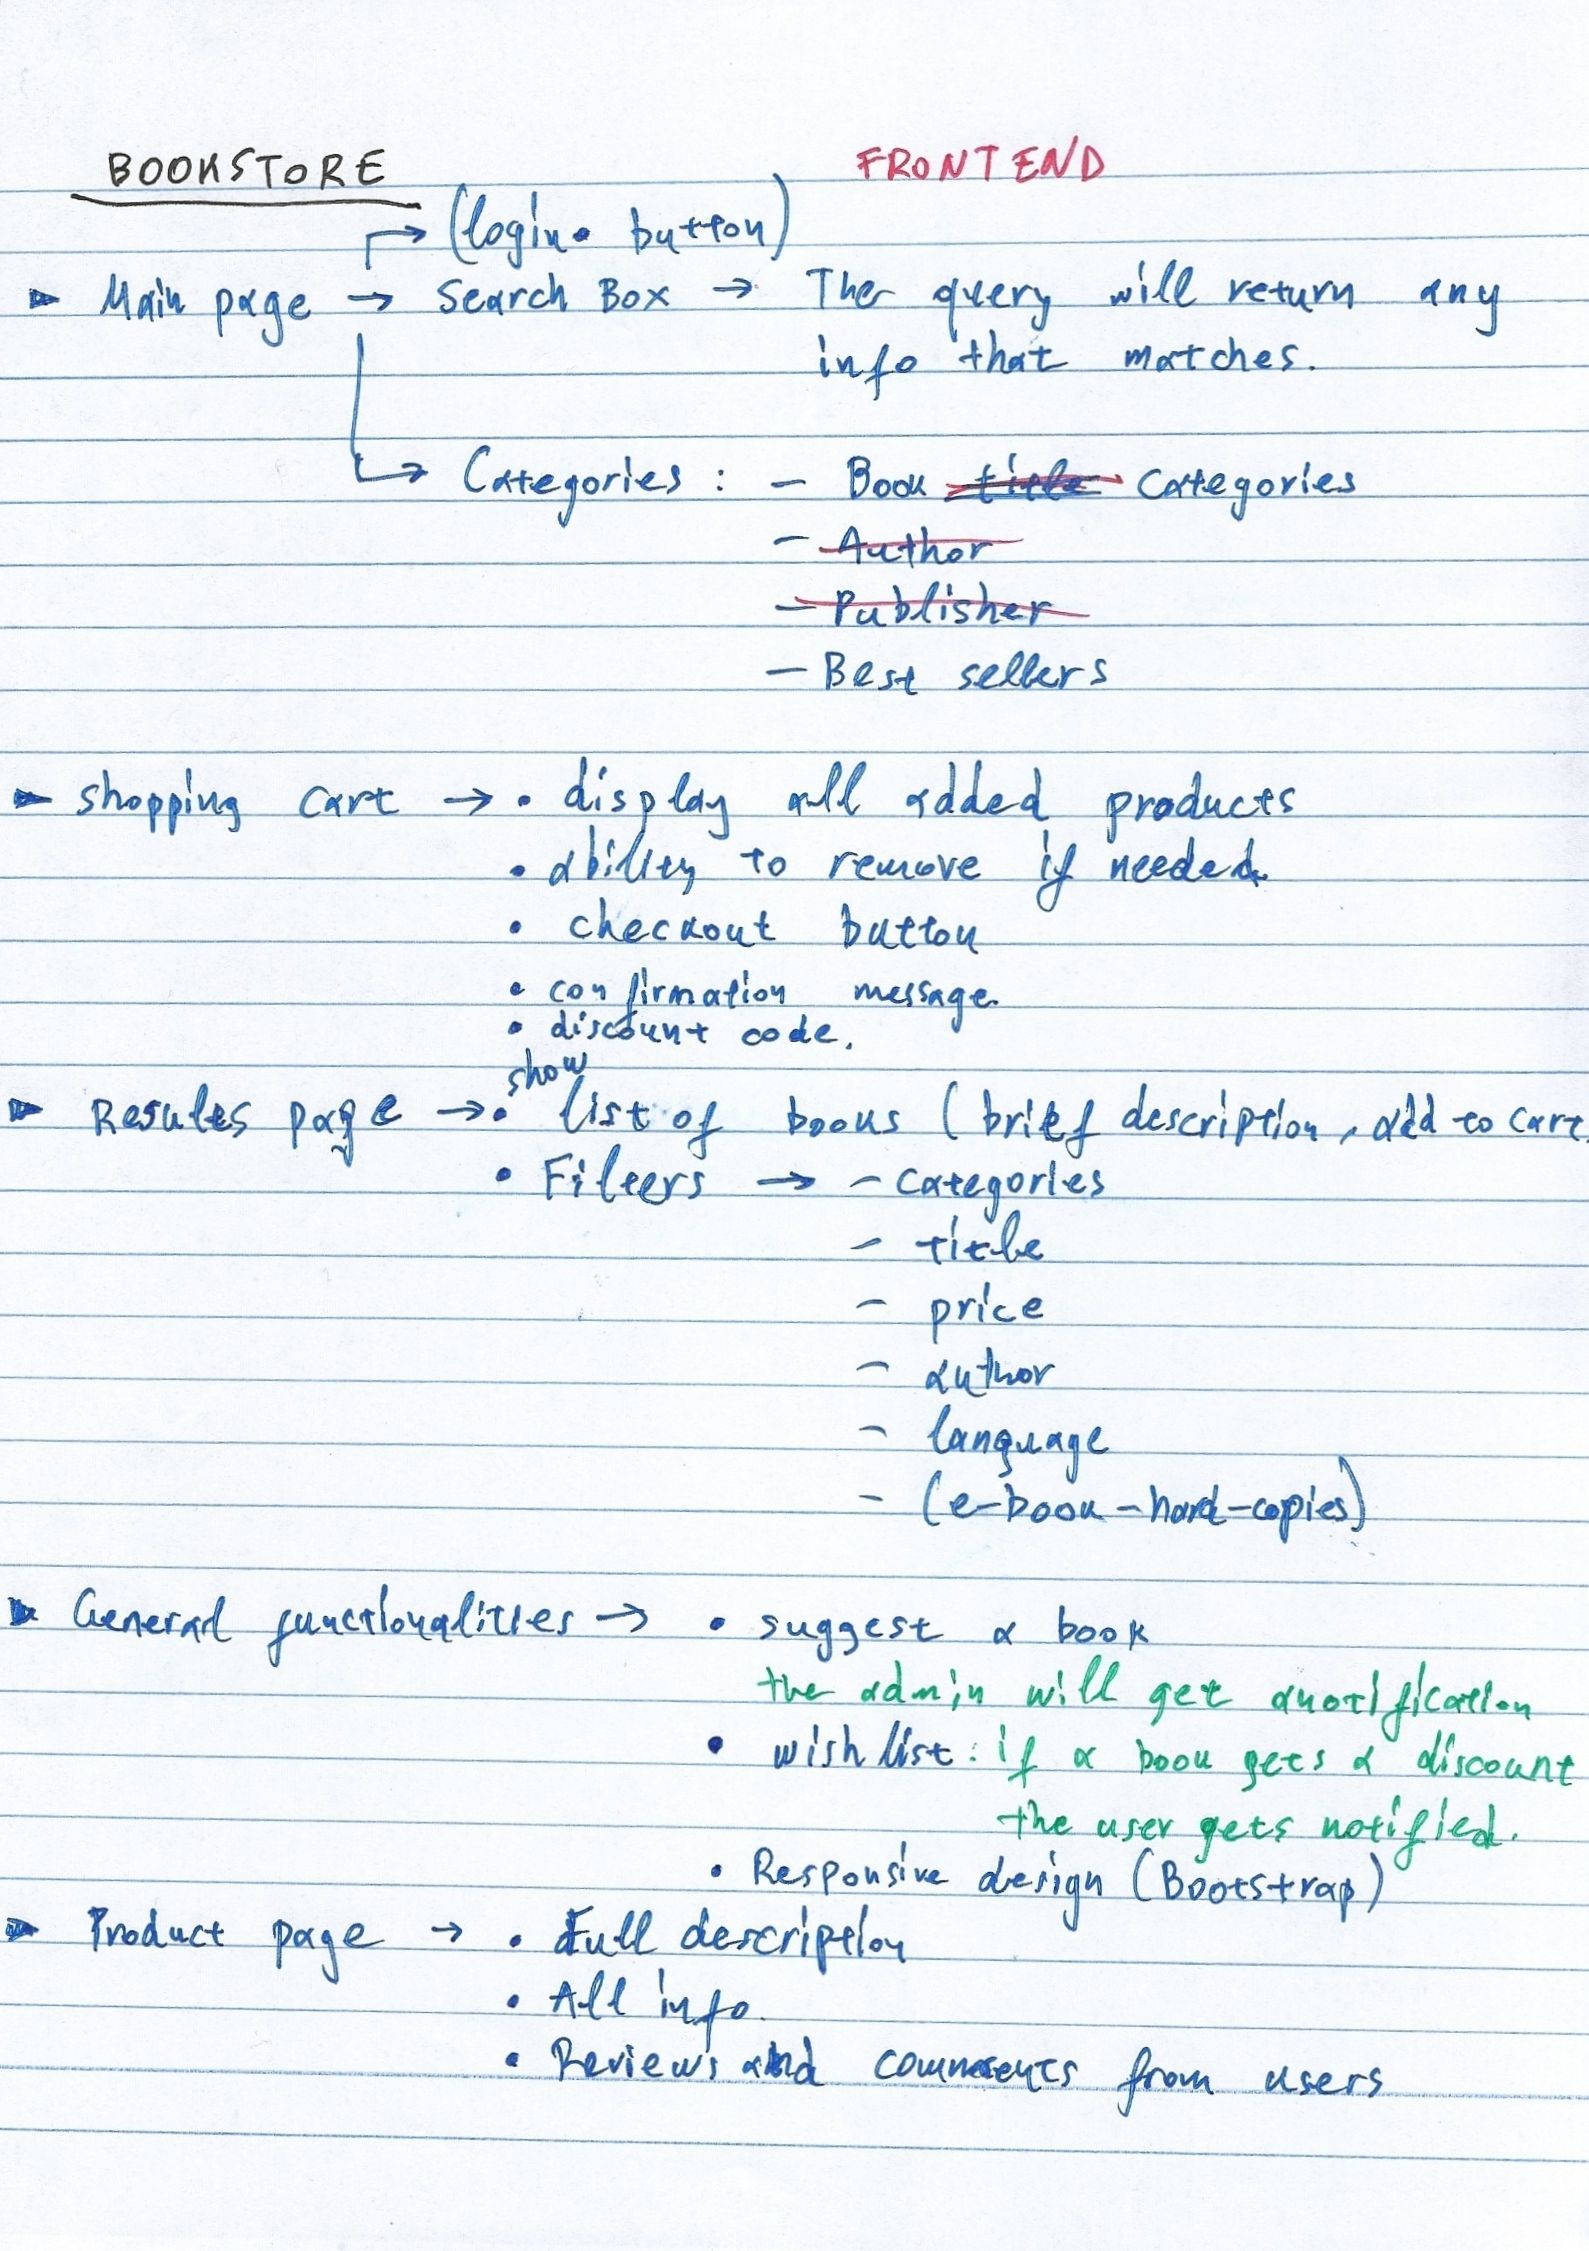 BOOKSTORE FRONTEND
(login. button)
Main page → Search Box → The query will return any
info that matches.
Categories : - Book title categories
- Author
- Publisher
- Best sellers
shopping cart → • display all added products
• ability to remove if needed.
• checkout button
• confirmation message.
• discount code.
show
Results page → • list of books (brief description, add to cart.
• Filters → - categories
- title
- price
- author
- language
- (e-book-hard-copies)
General functionalities → • suggest a book
the admin will get a notification
• wish list: if a book gets a discount
the user gets notified.
• Responsive design (Bootstrap)
Product page → • Full description
• All info.
• Reviews and comments from users